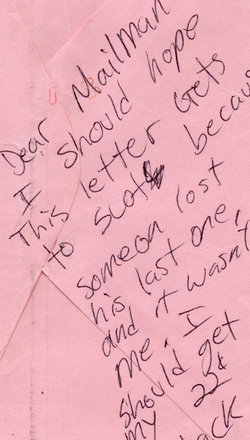 Dear Mailman
I should hope
This letter Gets
to Scott becau
someon lost
his last one,
and it wasn't
me. I
should get
my 22¢
ck